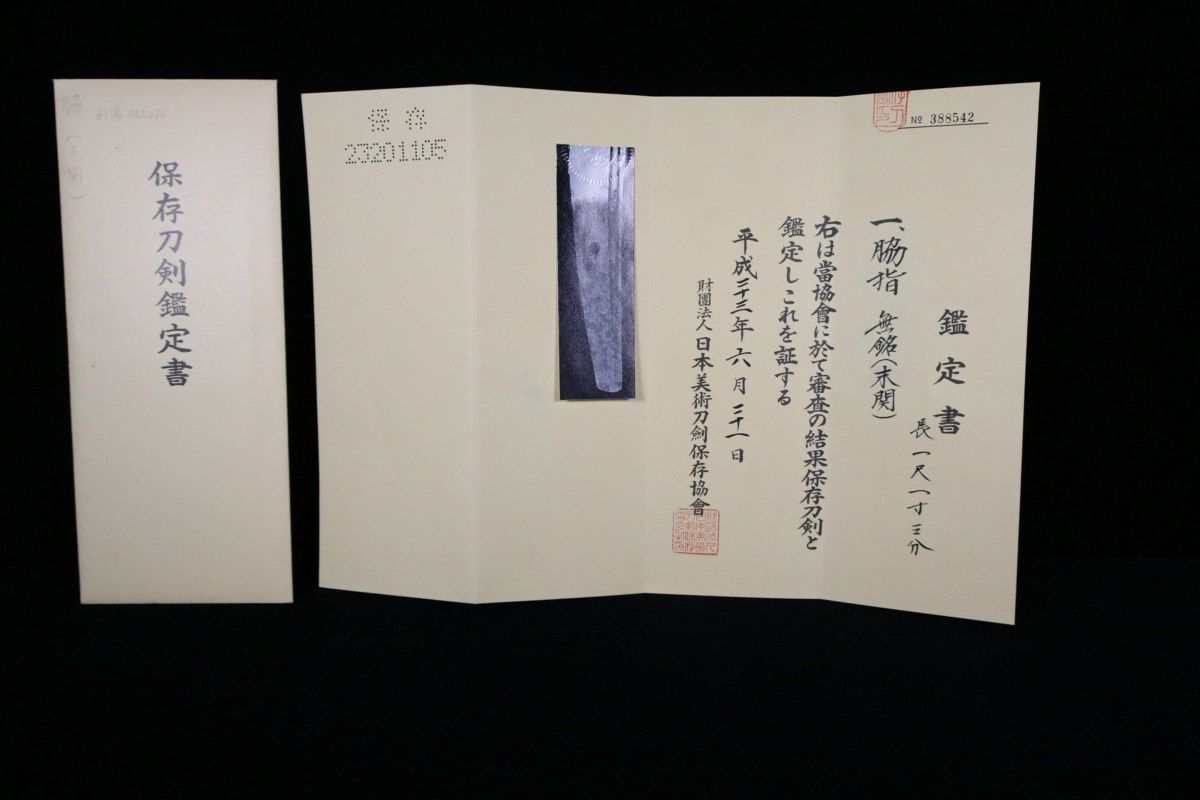 保存刀剣鑑定書
脇
(末関)
保存
23201105
№ 388542
鑑定書
一、脇指 無銘(末関)
長一尺一寸三分
右は當協會に於て審査の結果保存刀剣と
鑑定しこれを証する
平成二十三年六月二十一日
財團法人 日本美術刀劍保存協會